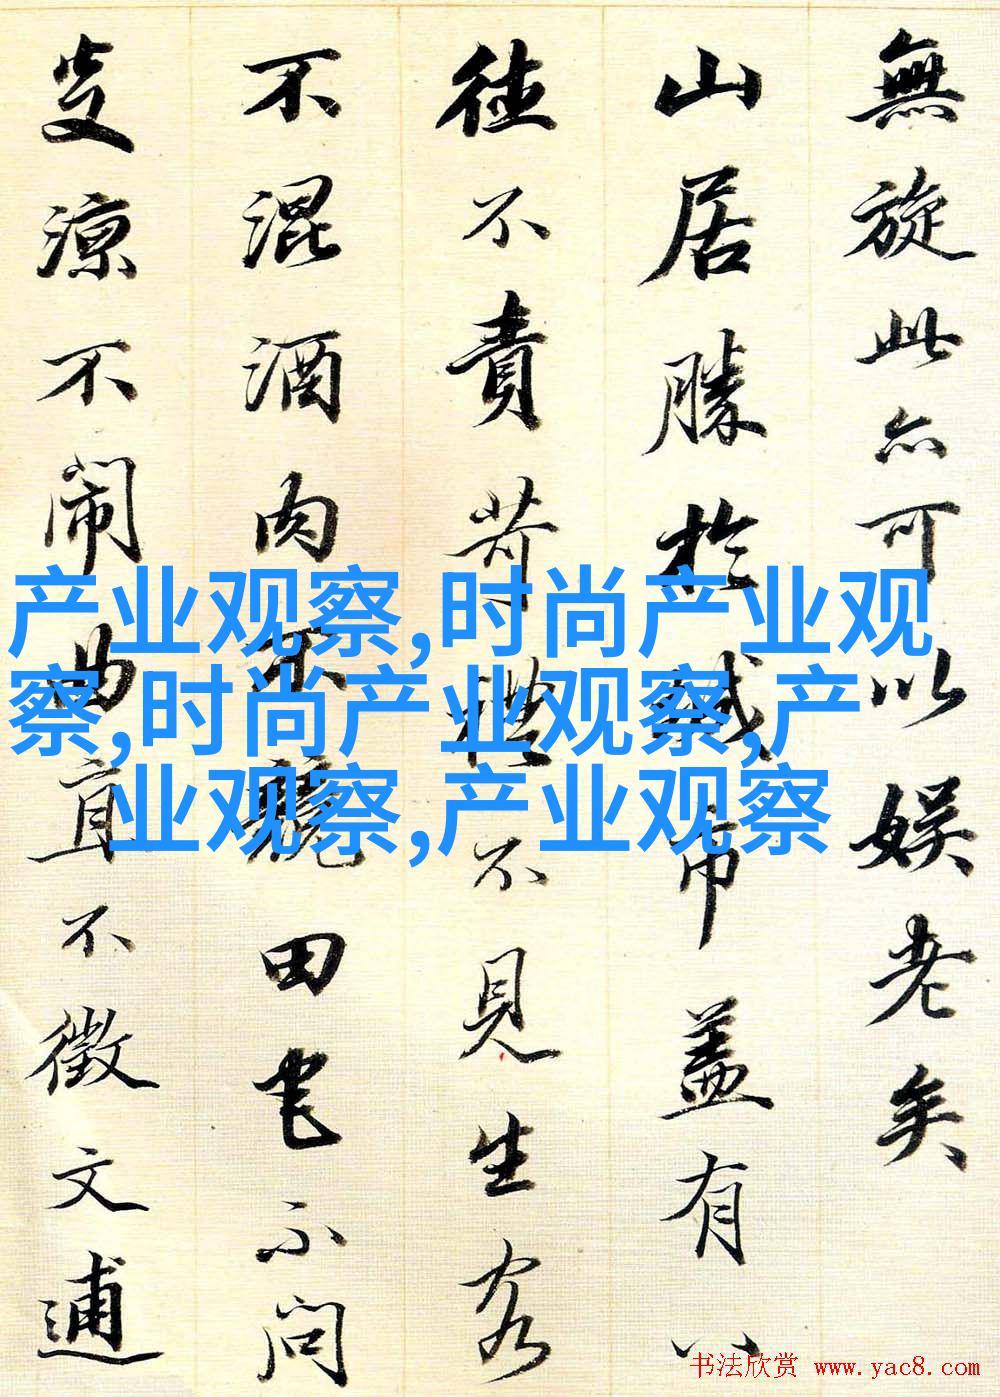 無旋此亦可以娱老矣
山居勝於城市盖有八
德不責苛禮不見生客
不混酒肉不競田宅不問
炎凉不闹曲直不徵文逋
产业观察,时尚产业观
察,时尚产业观察,产
业观察,产业观察
书法欣赏 www.yac8.com